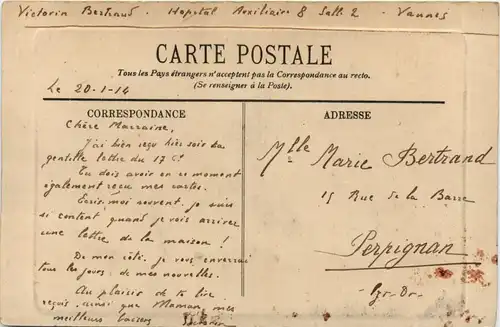 Victorin Bertrand. Hopital Auxiliaire 8 Salle 2 - Vannes
CARTE POSTALE
Tous les Pays étrangers n'acceptent pas la Correspondance au recto.
(Se renseigner à la Poste).
Le 20-1-14
CORRESPONDANCE
Chère Marraine,
J'ai bien reçu hier soir ta
gentille lettre du 17 Ct
Tu dois avoir en ce moment
également reçu mes cartes.
Ecris-moi souvent, je suis
si content quand je vois arriver
une lettre de la maison !
De mon côté, je vous enverrai
tous les jours, de mes nouvelles.
Au plaisir de te lire
reçois, ainsi que Maman, mes
meilleurs baisers
ADRESSE
Mlle Marie Bertrand
15 Rue de la Barre
Perpignan
Pyr-Or-